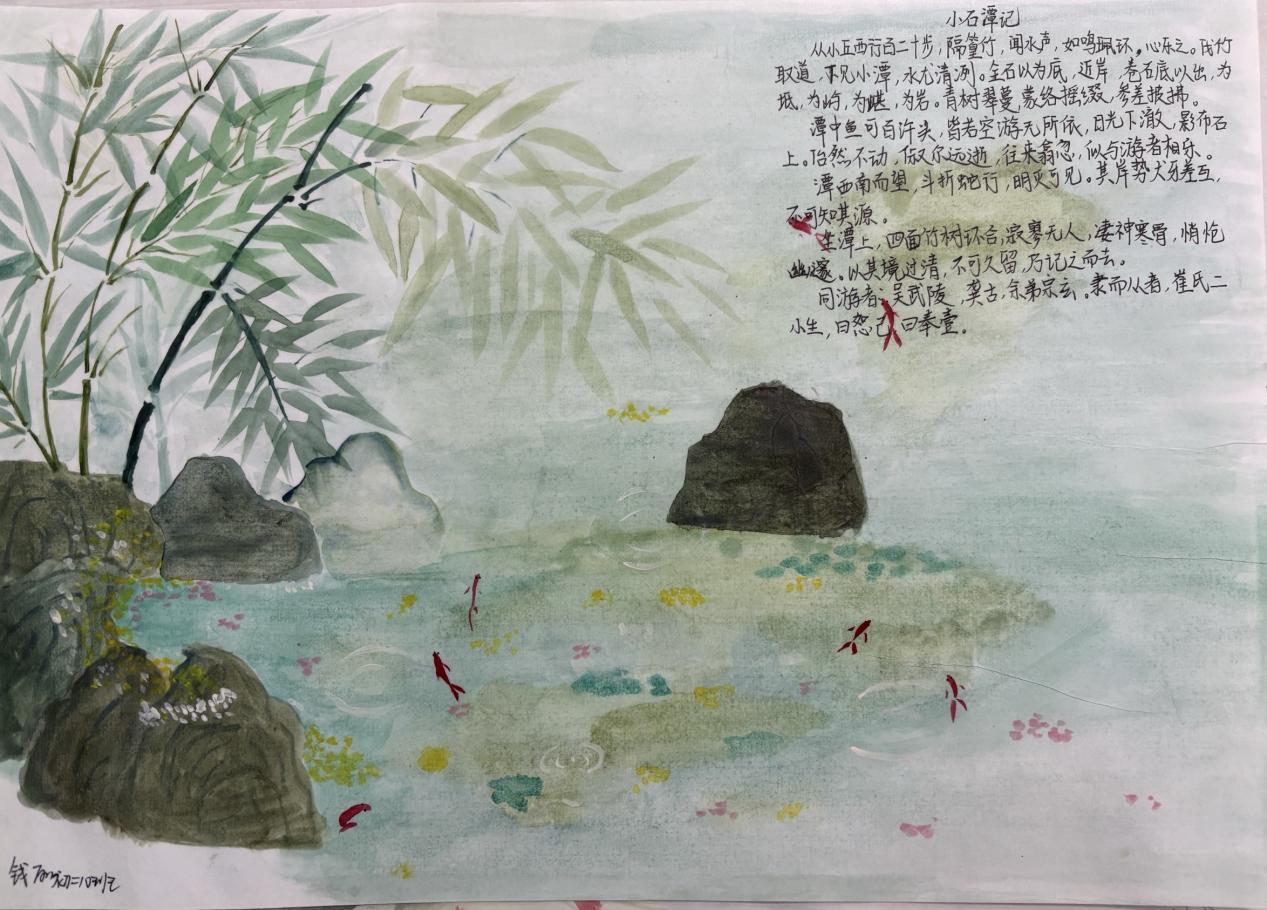 小石潭记
从小丘西行百二十步，隔篁竹，闻水声，如鸣珮环，心乐之。伐竹
取道，下见小潭，水尤清冽。全石以为底，近岸，卷石底以出，为
坻，为屿，为嵁，为岩。青树翠蔓，蒙络摇缀，参差披拂。
潭中鱼可百许头，皆若空游无所依，日光下澈，影布石
上。佁然不动，俶尔远逝，往来翕忽，似与游者相乐。
潭西南而望，斗折蛇行，明灭可见。其岸势犬牙差互，
不可知其源。
坐潭上，四面竹树环合，寂寥无人，凄神寒骨，悄怆
幽邃。以其境过清，不可久留，乃记之而去。
同游者：吴武陵，龚古，余弟宗玄。隶而从者，崔氏二
小生，曰恕己，曰奉壹。
钱 初二 班